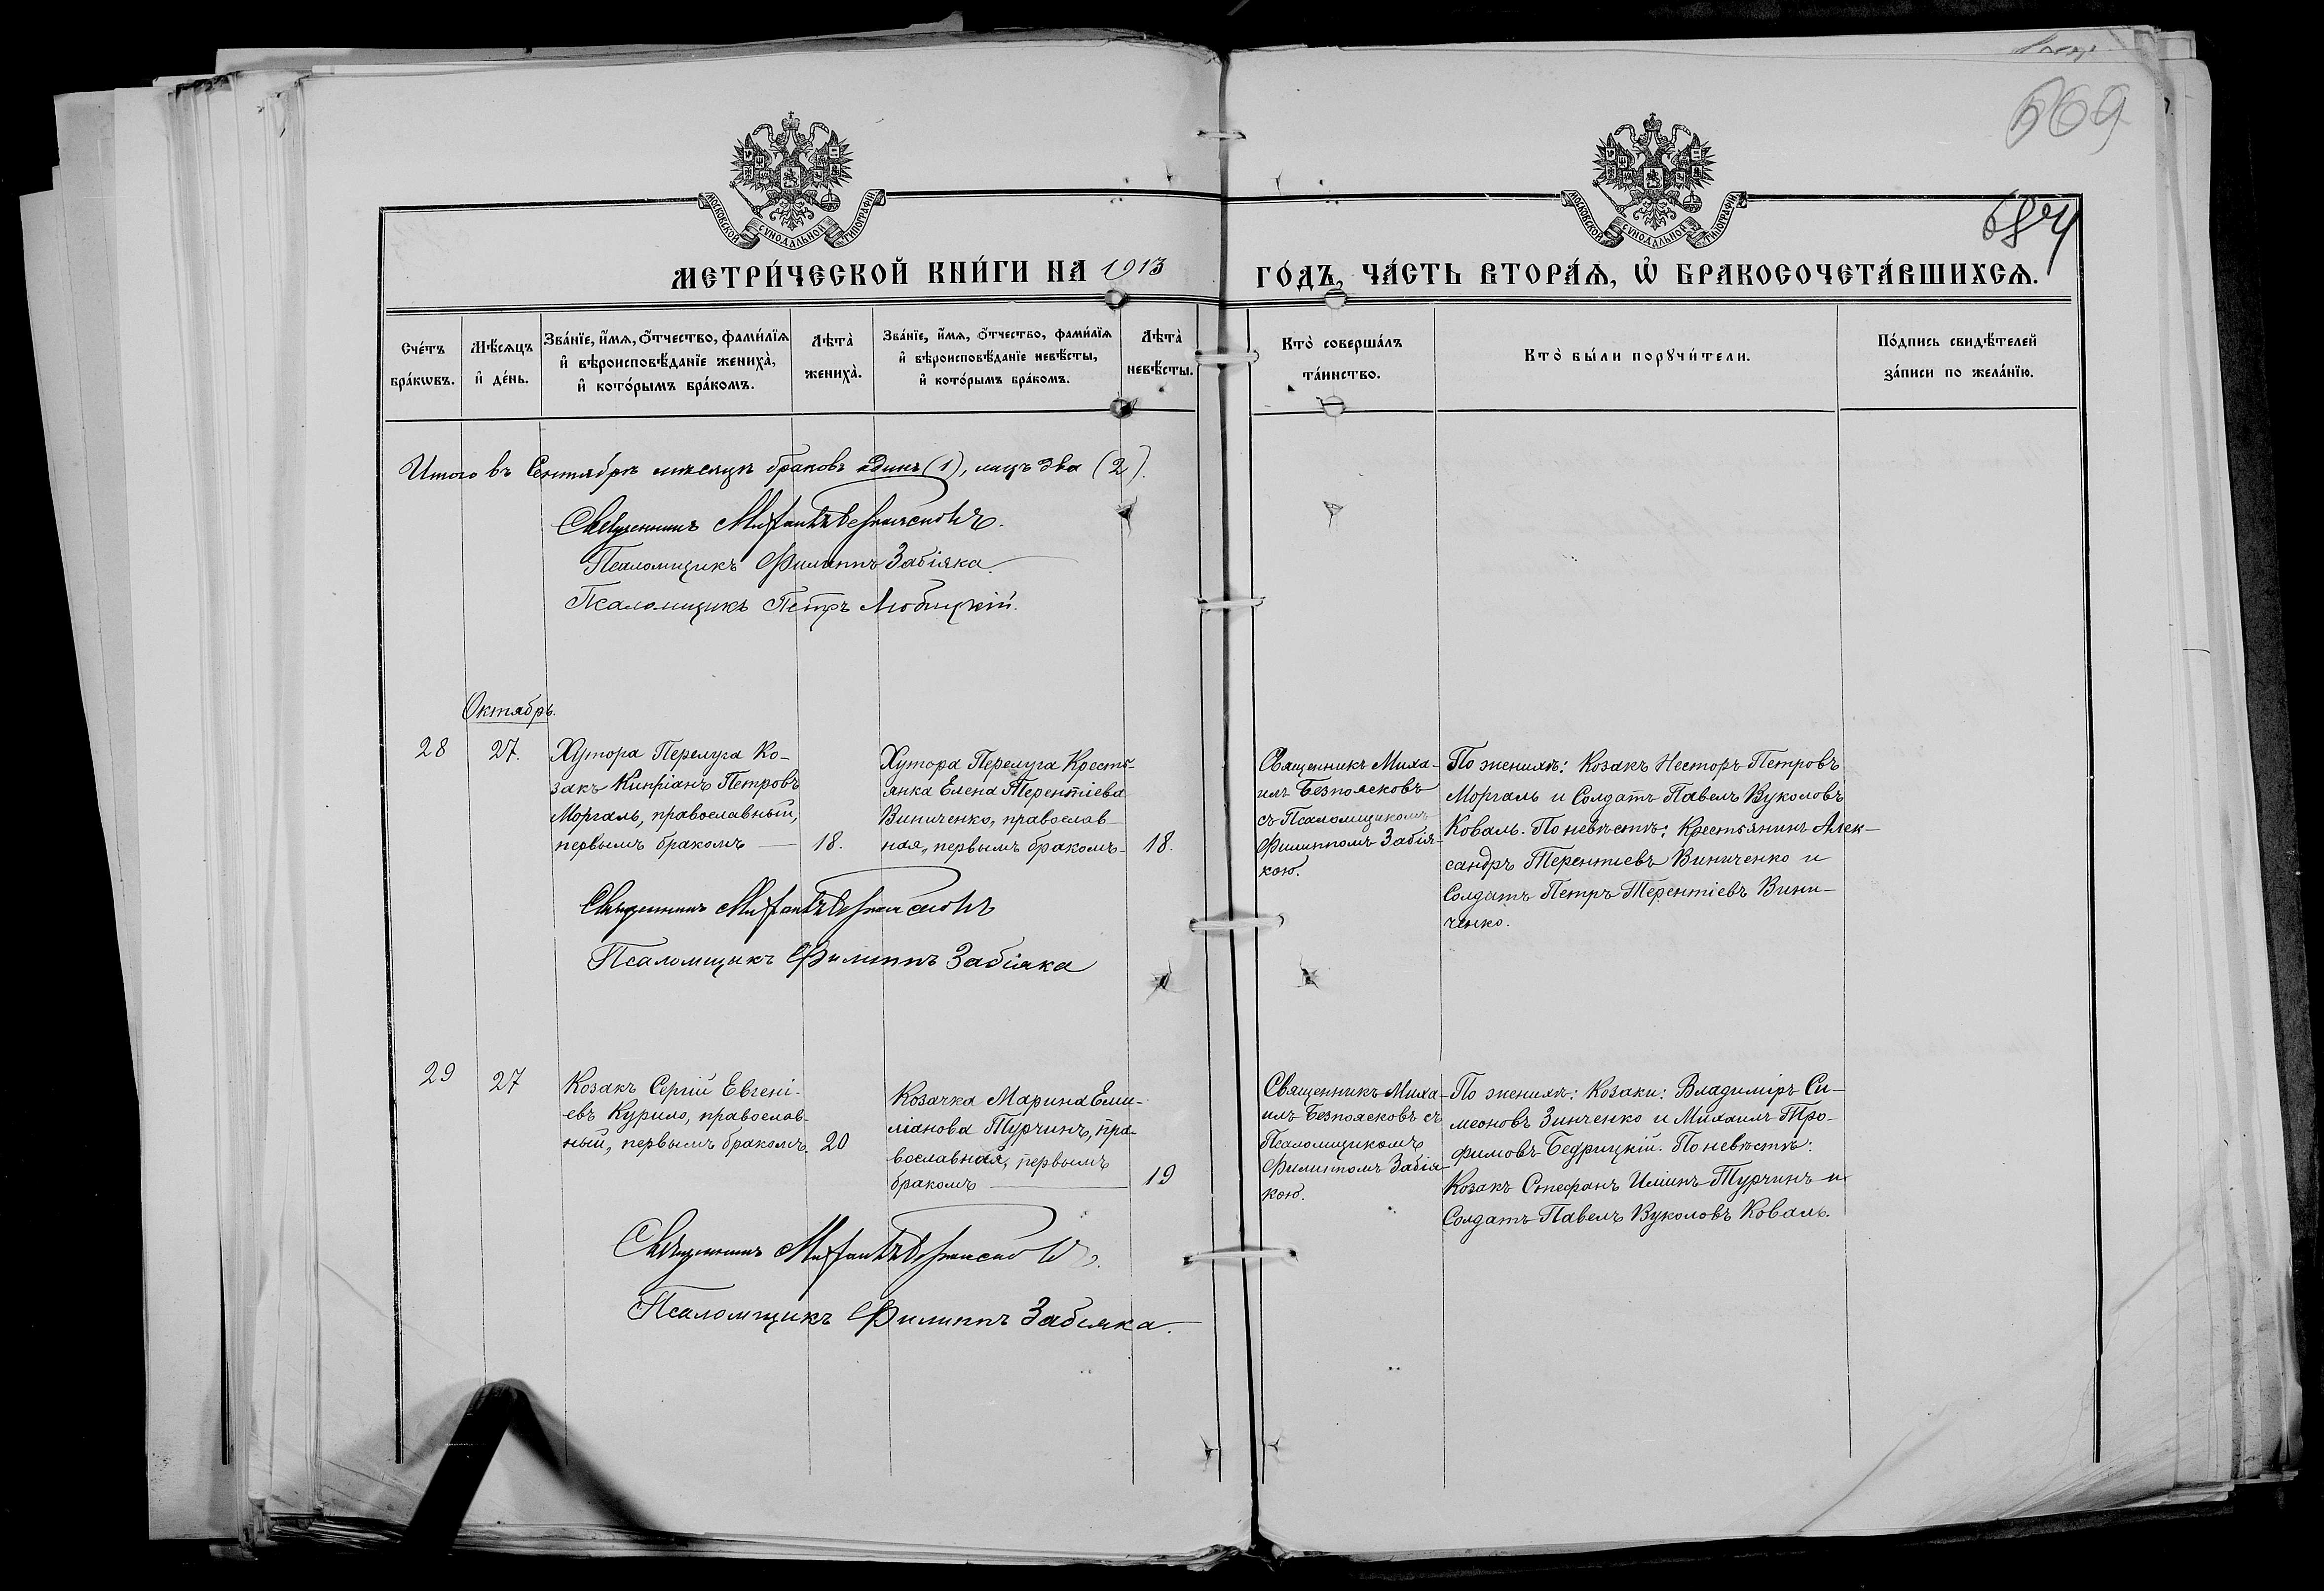 569
684
МОСКОВСКОЙ СѴНОДАЛЬНОЙ ТИПОГРАФІИ
МОСКОВСКОЙ СѴНОДАЛЬНОЙ ТИПОГРАФІИ
МЕТРИ́ЧЕСКОЙ КНИ́ГИ НА 1913
ГО́ДЪ, ЧА́СТЬ ВТОРА́Я, Ѽ БРАКОСОЧЕТА́ВШИХСѦ.
Сче́тъ
бра́кѡвъ.
Мѣ́сяцъ
и҆ де́нь.
Зва́нїе, и҆́мя, ѻ҆́тчество, фами́лїя
и҆ вѣроисповѣ́данїе жениха̀,
и҆ кото́рымъ бра́комъ.
Лѣта̀
жениха̀.
Зва́нїе, и҆́мя, ѻ҆́тчество, фами́лїя
и҆ вѣроисповѣ́данїе невѣ́сты,
и҆ кото́рымъ бра́комъ.
Лѣта̀
невѣ́сты.
Кто̀ соверша́лъ
та́инство.
Кто̀ бы́ли порꙋчи́тели.
По́дпись свидѣ́телей
за́писи по жела́нїю.
Итого въ Сентябрѣ мѣсяцѣ браковъ одинъ (1), лицъ два (2).
Священникъ Михаилъ Безпоясковъ.
Псаломщикъ Филиппъ Забіяка.
Псаломщикъ Петръ Любицкій.
Октябрь.
28
27.
Хутора Перелуга Ко-
закъ Кипріанъ Петровъ
Моргаль, православный,
первымъ бракомъ —
18.
Хутора Перелуга Кресть-
янка Елена Терентіева
Виниченко, православ-
ная, первымъ бракомъ-
18.
Священникъ Миха-
илъ Безпоясковъ
съ Псаломщикомъ
Филиппомъ Забія-
кою.
По женихѣ: Козакъ Несторъ Петровъ
Моргаль и Солдатъ Павелъ Вуколовъ
Коваль. По невѣстѣ: Крестьянинъ Алек-
сандръ Терентіевъ Виниченко и
Солдатъ Петръ Терентіевъ Вини-
ченко.
Священникъ Михаилъ Безпоясковъ
Псаломщикъ Филиппъ Забіяка
29
27
Козакъ Сергій Евгені-
евъ Курило, православ-
ный, первымъ бракомъ.
20
Козачка Марина Еми-
ліанова Турчинъ, пра-
вославная, первымъ
бракомъ —
19
Священникъ Миха-
илъ Безпоясковъ съ
Псаломщикомъ
Филиппомъ Забія-
кою.
По женихѣ: Козаки: Владиміръ Си-
меоновъ Зинченко и Михаилъ Тро-
фимовъ Бедрицкій. По невѣстѣ:
Козакъ Стефанъ Илiинъ Турчинъ и
Солдатъ Павелъ Вуколовъ Коваль.
Священникъ Михаилъ Безпоясковъ.
Псаломщикъ Филиппъ Забіяка.